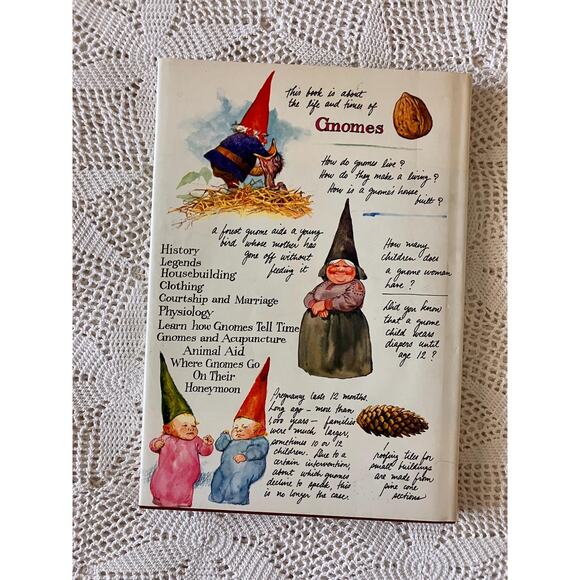 This book is about
the life and times of
Gnomes
How do gnomes live?
How do they make a living?
How is a gnome's house
built?
a forest gnome aids a young
bird whose mother has
gone off without
feeding it
History
Legends
Housebuilding
Clothing
Courtship and Marriage
Physiology
Learn how Gnomes Tell Time
Gnomes and Acupuncture
Animal Aid
Where Gnomes Go
On Their
Honeymoon
How many
children does
a gnome woman
have?
Did you know
that a gnome
child wears
diapers until
age 12?
Pregnancy lasts 12 months.
Long ago - more than
1,000 years - families
were much larger,
sometimes 10 or 12
children. Due to a
certain intervention
about which gnomes
decline to speak, this
is no longer the case.
roofing tiles for
small buildings
are made from
pine cone
sections